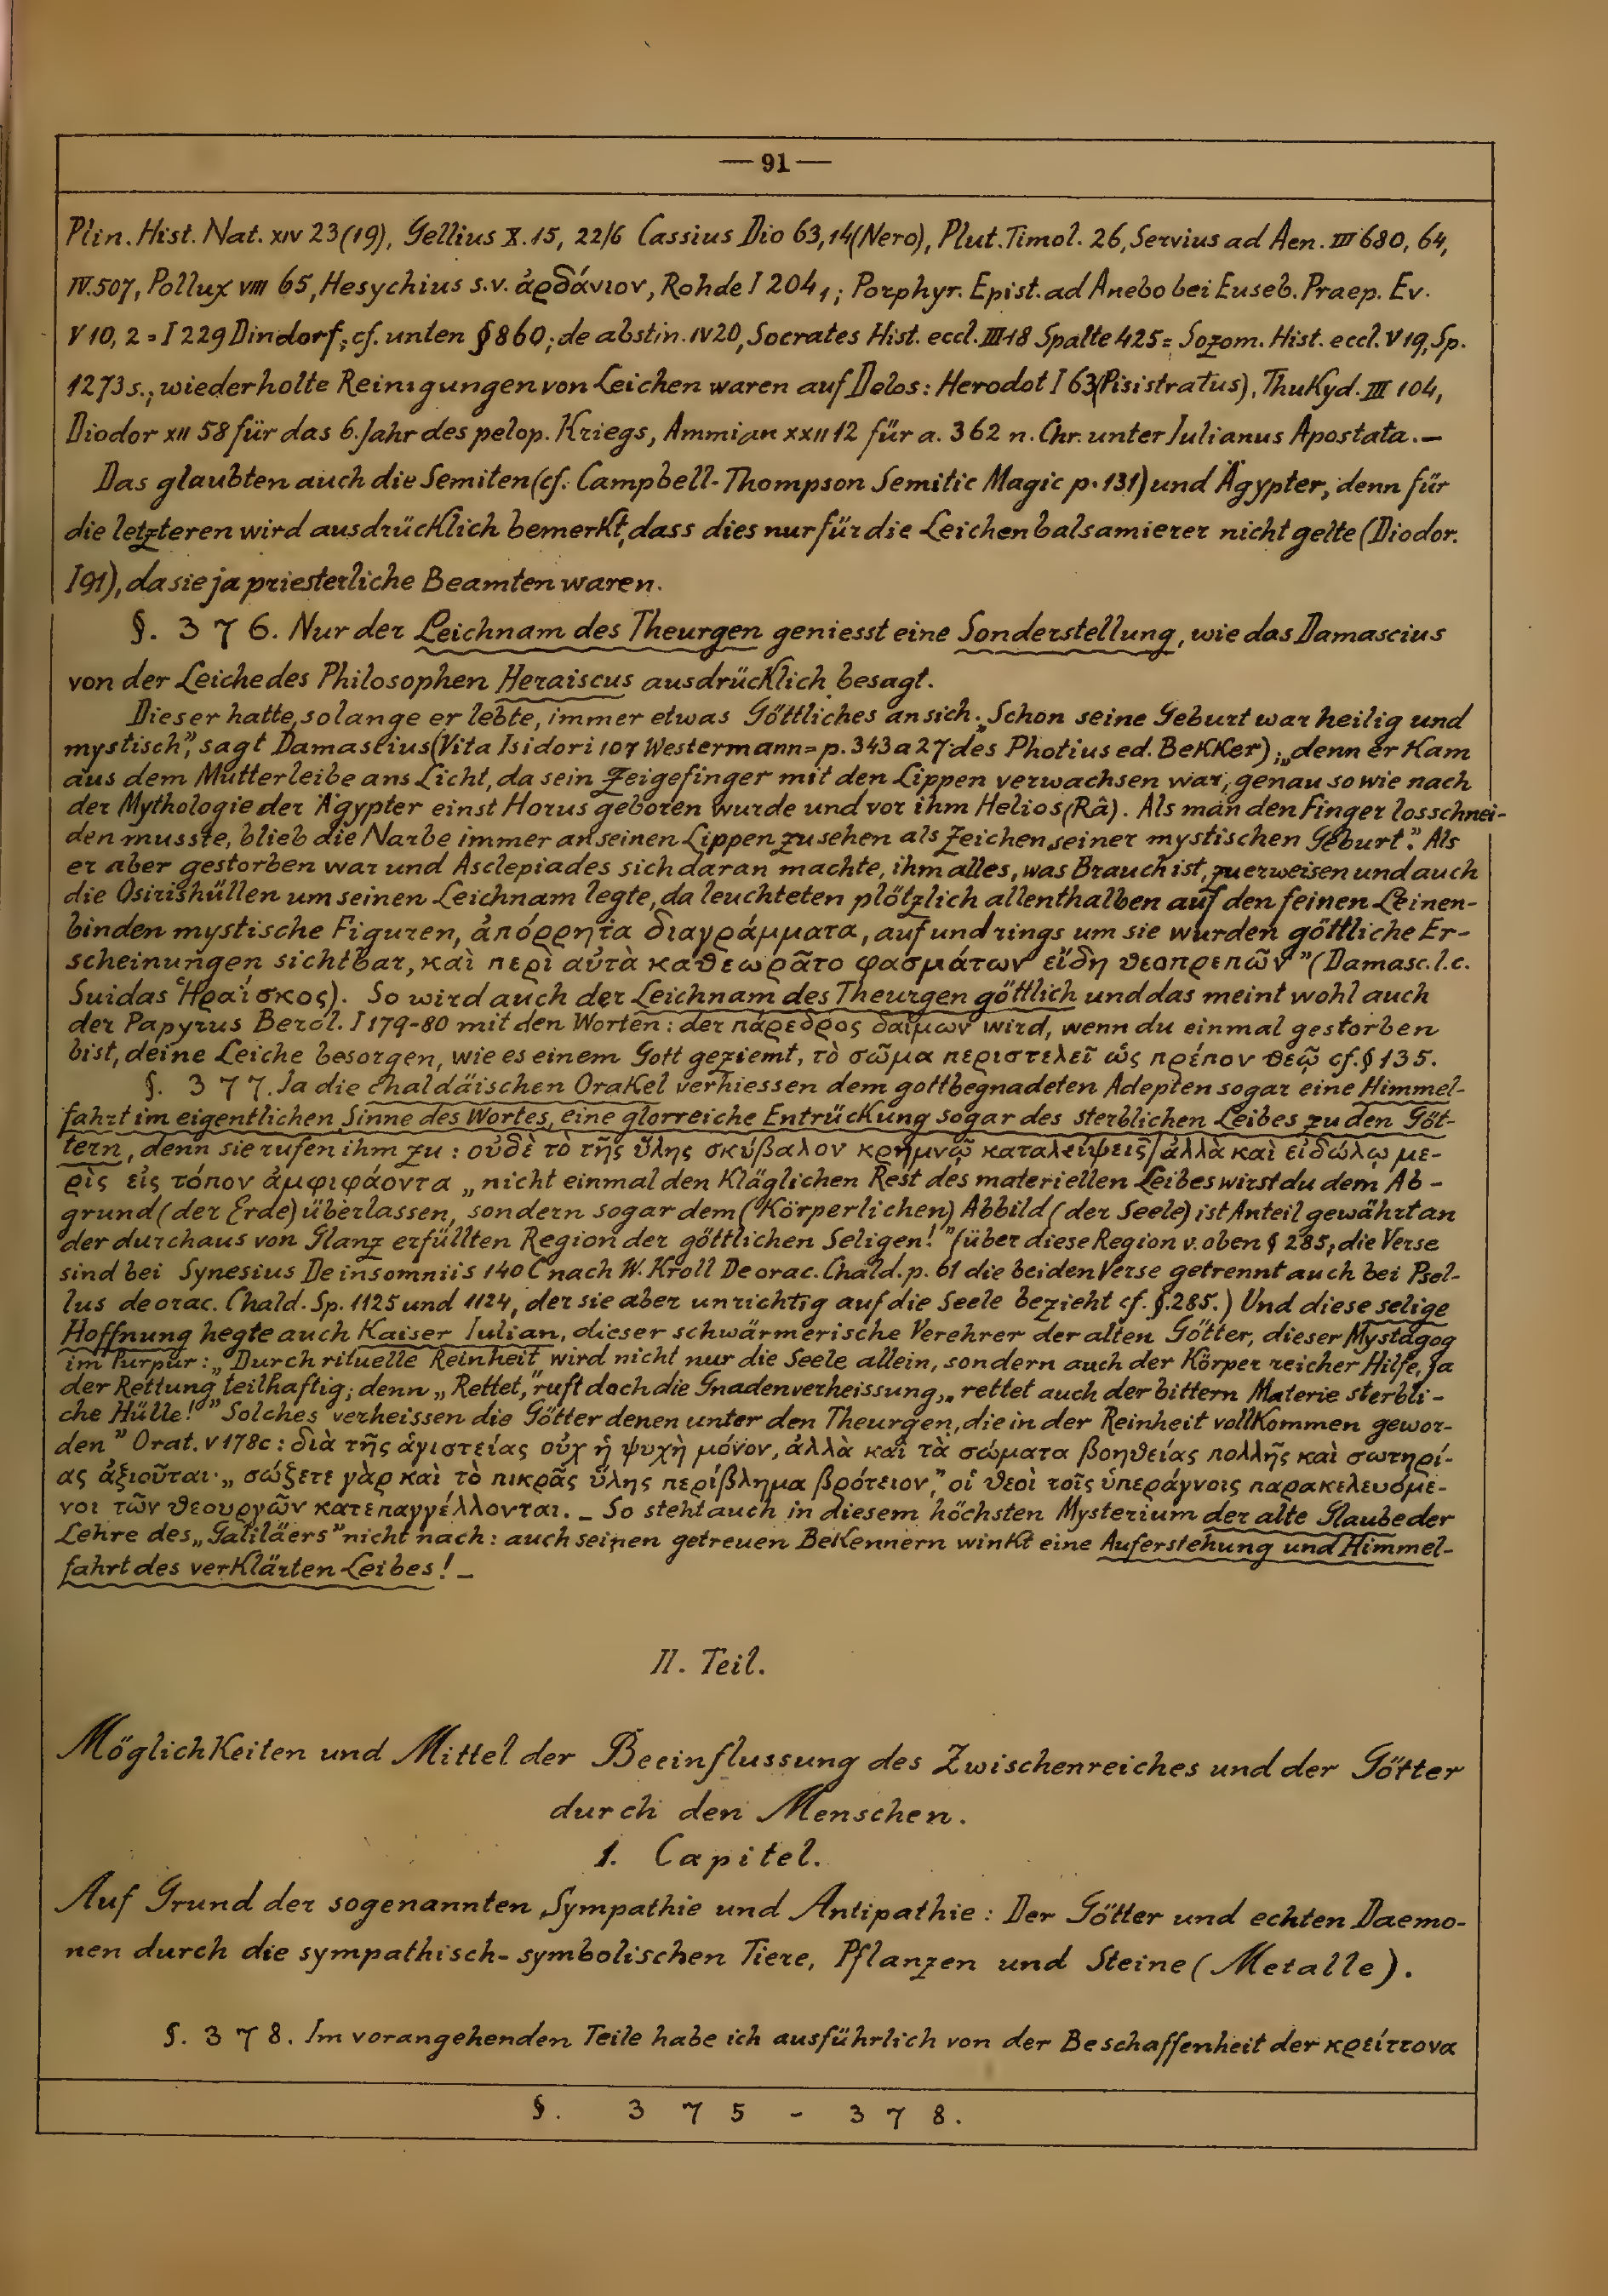 — 91 —
Plin. Hist. Nat. XIV 23 (19), Gellius X. 15, 22/6 Cassius Dio 63,14 (Nero), Plut. Timol. 26, Servius ad Aen. III 680, 64,
IV. 507, Pollux VIII 65, Hesychius s.v. ἀρδάνιον, Rohde I 204,; Porphyr. Epist. ad Anebo bei Euseb. Praep. Ev.
V 10, 2 = I 229 Dindorf, cf. unten § 860; de abstin. IV 20, Socrates Hist. eccl. III 18 Spalte 425 = Sozom. Hist. eccl. V 19, Sp.
1273 s.; wiederholte Reinigungen von Leichen waren auf Delos: Herodot I 63 (Pisistratus), Thukyd. III 104,
Diodor XII 58 für das 6. Jahr des pelop. Kriegs, Ammian XXII 12 für a. 362 n. Chr. unter Iulianus Apostata. —
Das glaubten auch die Semiten (cf. Campbell-Thompson Semitic Magic p. 131) und Ägypter, denn für
die letzteren wird ausdrücklich bemerkt, dass dies nur für die Leichenbalsamierer nicht gelte (Diodor.
I 91), da sie ja priesterliche Beamten waren.
§. 376. Nur der Leichnam des Theurgen geniesst eine Sonderstellung, wie das Damascius
von der Leiche des Philosophen Heraiscus ausdrücklich besagt.
Dieser hatte, solange er lebte, immer etwas Göttliches an sich. „Schon seine Geburt war heilig und
mystisch", sagt Damascius (Vita Isidori 107 Westermann = p. 343 a 27 des Photius ed. Bekker); „denn er kam
aus dem Mutterleibe ans Licht, da sein Zeigefinger mit den Lippen verwachsen war, genau so wie nach
der Mythologie der Ägypter einst Horus geboren wurde und vor ihm Helios (Râ). Als man den Finger losschnei-
den musste, blieb die Narbe immer an seinen Lippen zu sehen als Zeichen seiner mystischen Geburt". Als
er aber gestorben war und Asclepiades sich daran machte, ihm alles, was Brauch ist, zu erweisen und auch
die Osirishüllen um seinen Leichnam legte, da leuchteten plötzlich allenthalben auf den feinen Leinen-
binden mystische Figuren, ἀπόρρητα διαγράμματα, auf und rings um sie wurden göttliche Er-
scheinungen sichtbar, καὶ περὶ αὐτὰ καθεωρᾶτο φασμάτων εἴδη θεοπρεπῶν" (Damasc. l. c.
Suidas Ἡραΐσκος). So wird auch der Leichnam des Theurgen göttlich und das meint wohl auch
der Papyrus Berol. I 179-80 mit den Worten: der πάρεδρος δαίμων wird, wenn du einmal gestorben
bist, deine Leiche besorgen, wie es einem Gott geziemt, τὸ σῶμα περιστελεῖ ὡς πρέπον θεῷ cf. § 135.
§. 377. Ja die chaldäischen Orakel verhiessen dem gottbegnadeten Adepten sogar eine Himmel-
fahrt im eigentlichen Sinne des Wortes, eine glorreiche Entrückung sogar des sterblichen Leibes zu den Göt-
tern, denn sie rufen ihm zu: οὐδὲ τὸ τῆς ὕλης σκύβαλον κρημνῷ καταλείψεις / ἀλλὰ καὶ εἰδώλῳ με-
ρὶς εἰς τόπον ἀμφιφάοντα „nicht einmal den kläglichen Rest des materiellen Leibes wirst du dem Ab-
grund (der Erde) überlassen, sondern sogar dem (körperlichen) Abbild (der Seele) ist Anteil gewährt an
der durchaus von Glanz erfüllten Region der göttlichen Seligen!" (über diese Region v. oben § 285; die Verse
sind bei Synesius De insomniis 140 C nach W. Kroll De orac. Chald. p. 61 die beiden Verse getrennt auch bei Psel-
lus de orac. Chald. Sp. 1125 und 1124, der sie aber unrichtig auf die Seele bezieht cf. §. 285.) Und diese selige
Hoffnung hegte auch Kaiser Iulian, dieser schwärmerische Verehrer der alten Götter, dieser Mystagog
im Purpur: „Durch rituelle Reinheit wird nicht nur die Seele allein, sondern auch der Körper reicher Hilfe, ja
der Rettung teilhaftig; denn „Rettet," ruft doch die Gnadenverheissung, „rettet auch der bittern Materie sterbli-
che Hülle!" Solches verheissen die Götter denen unter den Theurgen, die in der Reinheit vollkommen gewor-
den" Orat. V 178c: διὰ τῆς ἁγιστείας οὐχ ἡ ψυχὴ μόνον, ἀλλὰ καὶ τὰ σώματα βοηθείας πολλῆς καὶ σωτηρί-
ας ἀξιοῦται· „σώζετε γὰρ καὶ τὸ πικρᾶς ὕλης περίβλημα βρότειον," οἱ θεοὶ τοῖς ὑπεράγνοις παρακελευόμε-
νοι τῶν θεουργῶν κατεπαγγέλλονται. — So steht auch in diesem höchsten Mysterium der alte Glaube der
Lehre des „Galiläers" nicht nach: auch seinen getreuen Bekennern winkt eine Auferstehung und Himmel-
fahrt des verklärten Leibes! —
II. Teil.
Möglichkeiten und Mittel der Beeinflussung des Zwischenreiches und der Götter
durch den Menschen.
1. Capitel.
Auf Grund der sogenannten Sympathie und Antipathie: Der Götter und echten Daemo-
nen durch die sympathisch-symbolischen Tiere, Pflanzen und Steine (Metalle).
§. 378. Im vorangehenden Teile habe ich ausführlich von der Beschaffenheit der κρείττονα
§. 375 - 378.